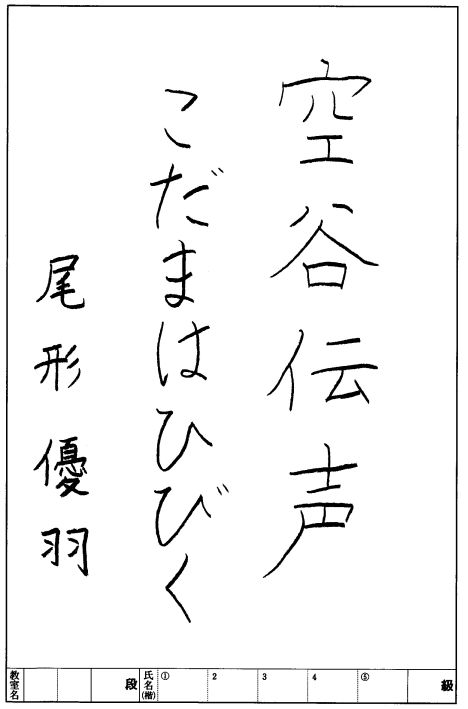 空谷伝声
こだまはひびく
尾形優羽
教室名 段 氏名(楷) ① 2 3 4 ⑤ 級